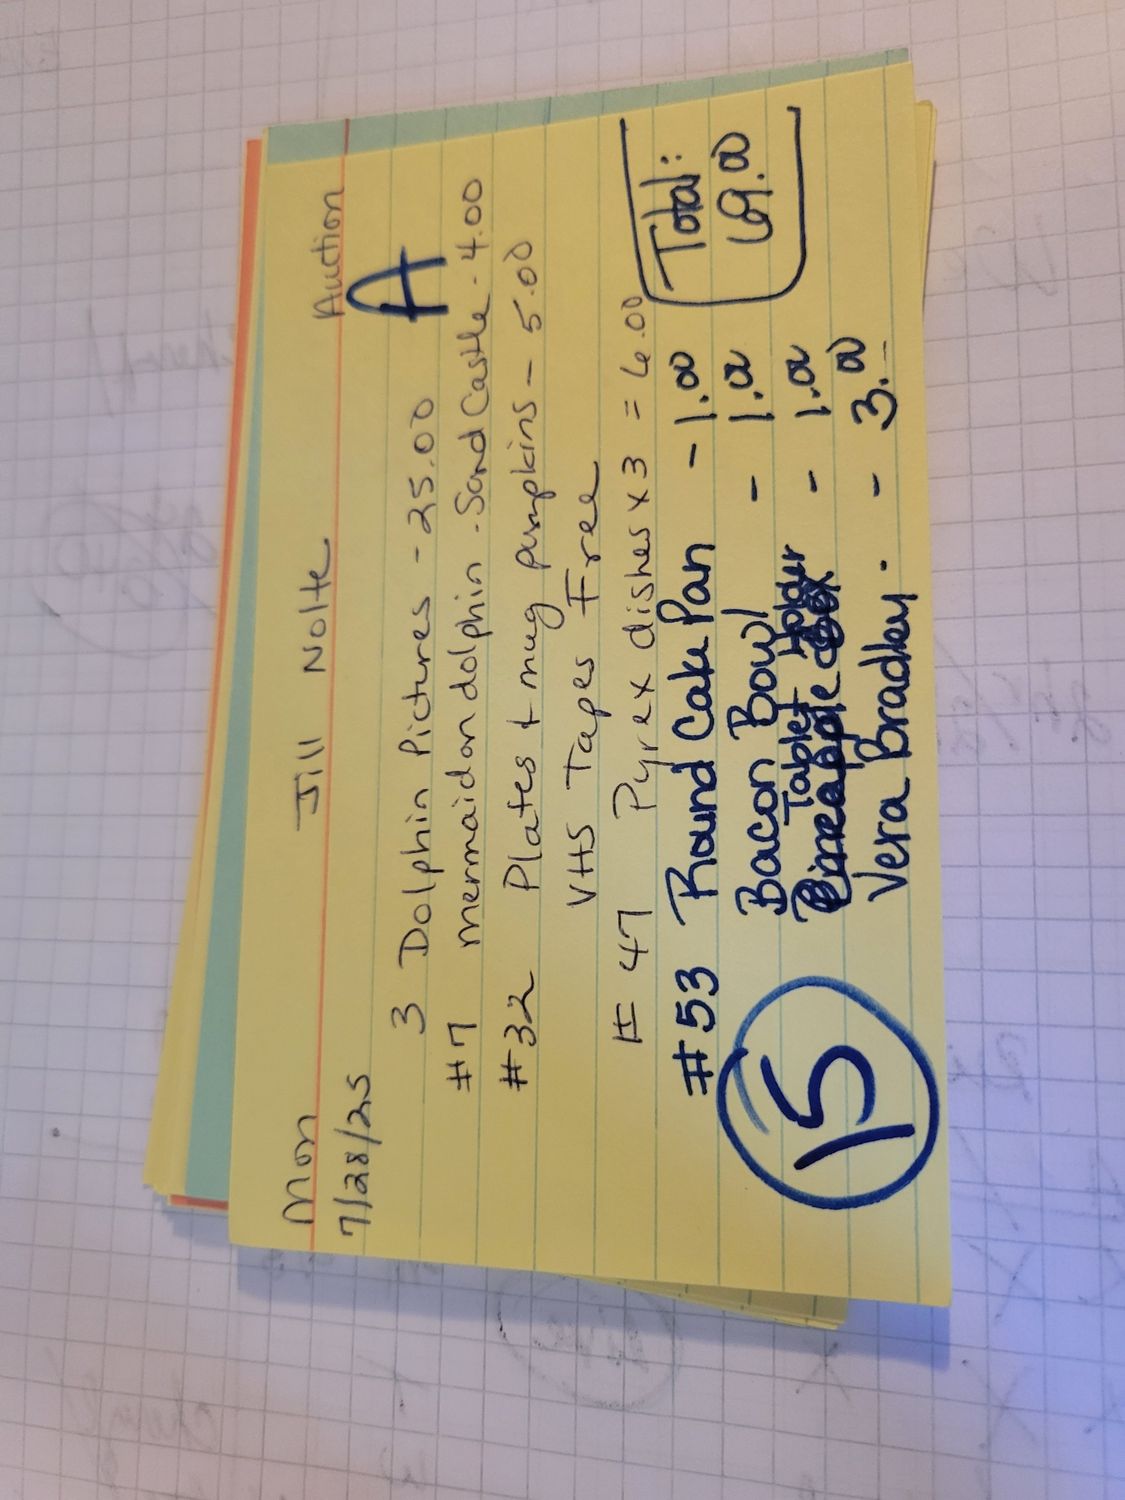 Mon Jill Nolte Auction
7/28/25
A
3 Dolphin Pictures - 25.00
#7 mermaid on dolphin - Sand Castle - 4.00
#32 Plates + mug pumpkins - 5.00
VHS Tapes Free
# 47 Pyrex dishes x 3 = 6.00
#53 Round Cake Pan - 1.00
Bacon Bowl - 1.00
Tablet Holder - 1.00
Pineapple
Vera Bradley. - 3.00
15
Total:
69.00